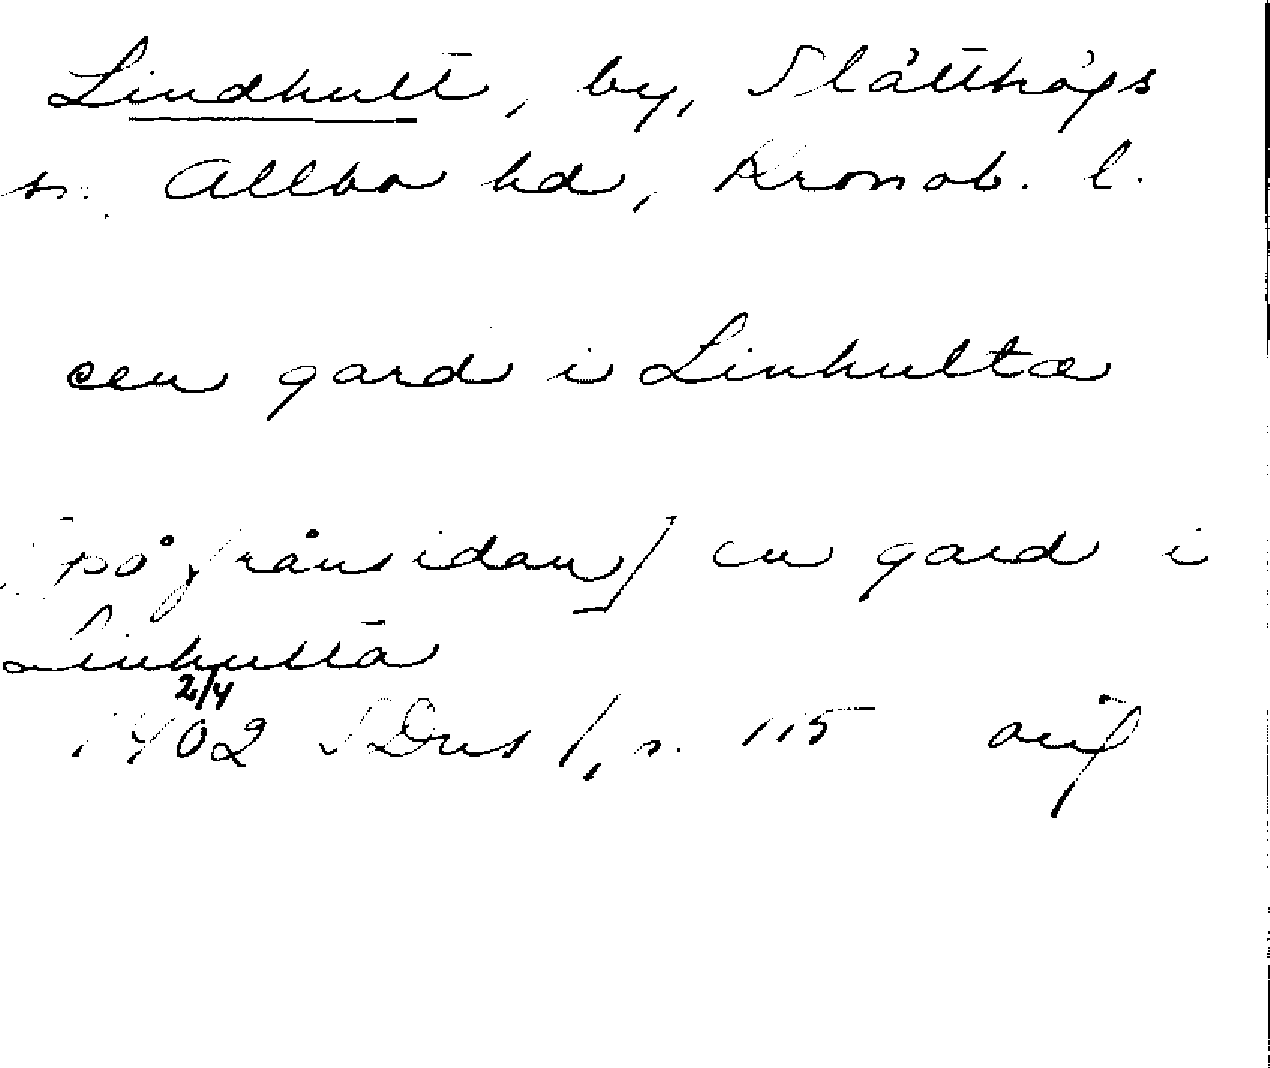 Lindhult, by, Slätthögs
sn. Allbo hd, Kronob. l.
een gard i Linhulta
[på frånsidan] en gard i
Linhulta
2/4
1402 SDns 1, s. 115 orig